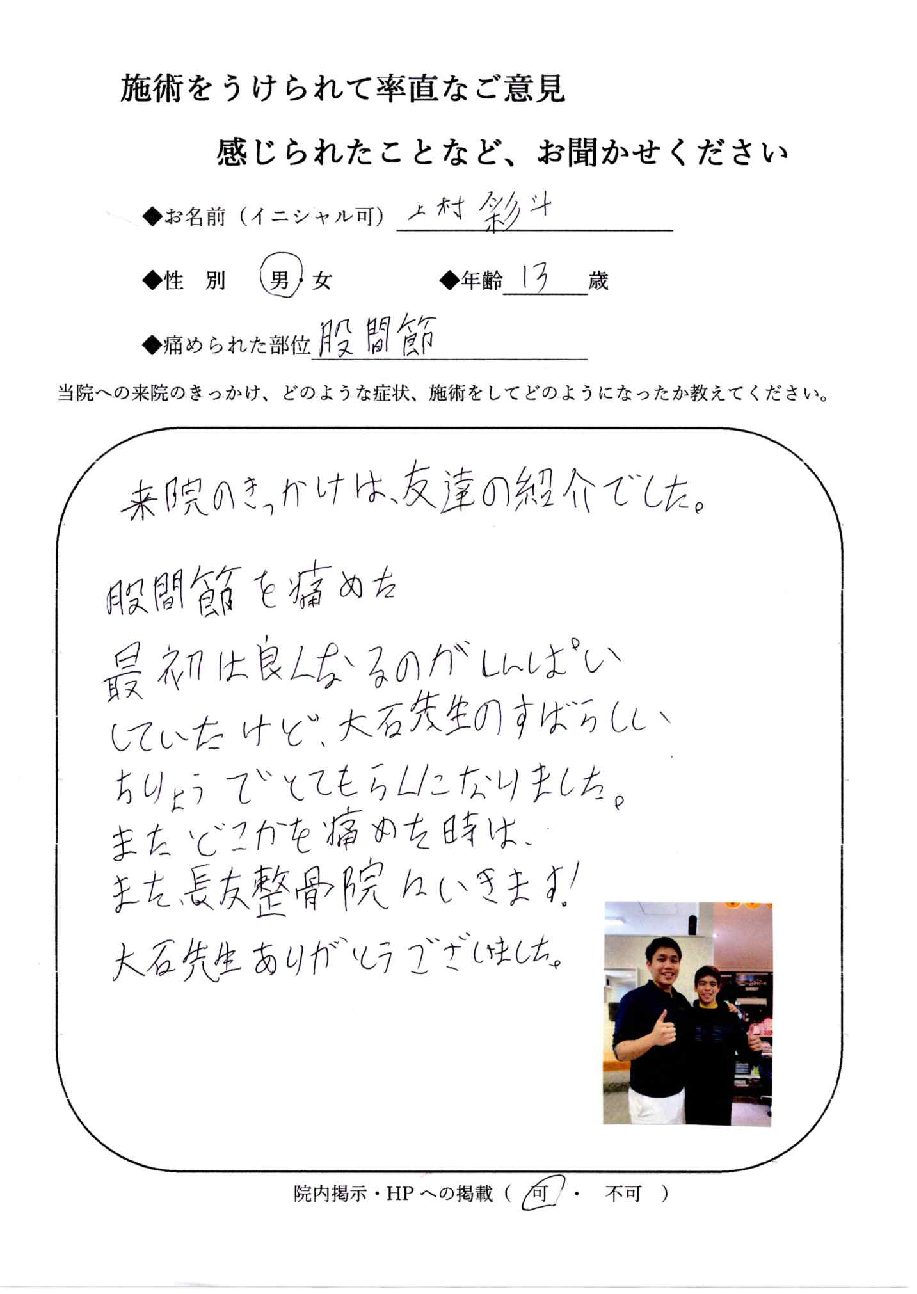 施術をうけられて率直なご意見
感じられたことなど、お聞かせください
◆お名前（イニシャル可）上村 彩斗
◆性 別 男・女 ◆年齢 13 歳
◆痛められた部位 股間節
当院への来院のきっかけ、どのような症状、施術をしてどのようになったか教えてください。
来院のきっかけは、友達の紹介でした。
股間節を痛めた
最初は良くなるのがしんぱい
していたけど、大石先生のすばらしい
ちりょうでとてもらくになりました。
またどこかを痛めた時は、
また、長友整骨院にいきます!
大石先生ありがとうございました。
院内掲示・HPへの掲載（ 可 ・ 不可 ）